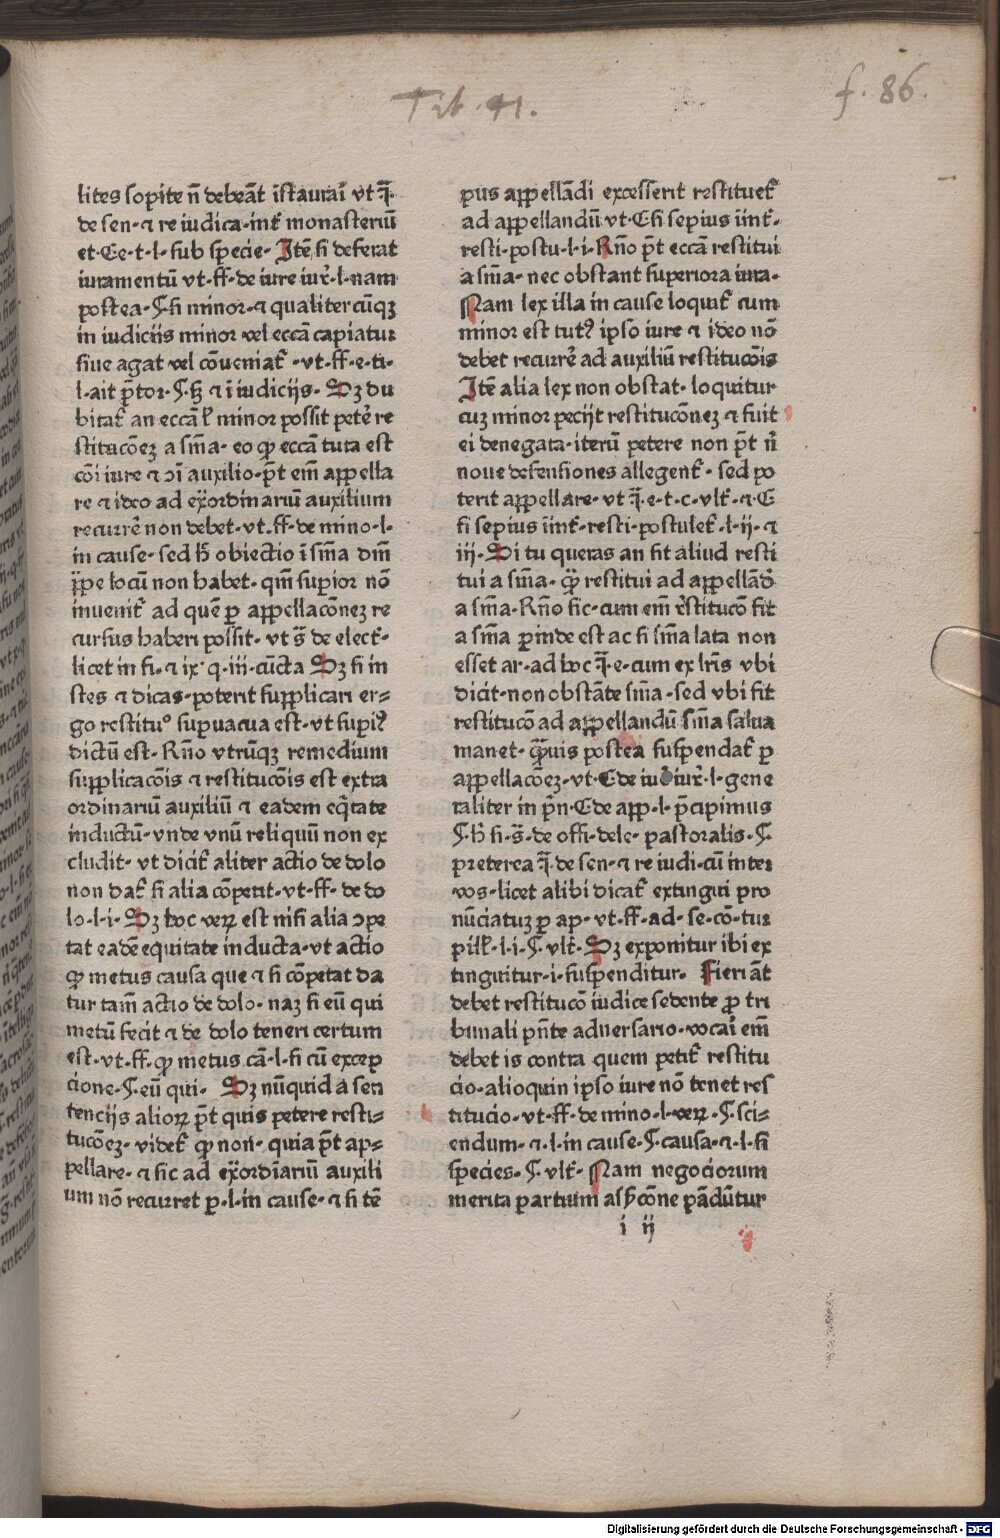 Tit. 41.
f. 86.
lites sopite n̄ debeāt īstaurai᷑ vt q̄.
de sen. ⁊ re iudica. int᷑ monasteriū
et. Ce. t. l. sub specie. Itē si deferat
iuramentū vt. ff. de iure iur᷑. l. nam
postea. §. si minor. ⁊ qualitercūqꝫ
in iudiciis minor vel eccā capiatur
siue agat vel cōueniat᷑. vt. ff. e. ti.
l. ait p̄tor. §. hꝫ ⁊ ī iudicijs. Sꝫ du
bitat᷑ an eccā ł minor possit pete᷑ re
stitucōeꝫ a smā. eo ꝙ eccā tuta est
cōi iure ⁊ ꝯi auxilio. p̄t em̄ appella
re ⁊ ideo ad ex̄ordinariū auxilium
recurre᷑ non debet. vt. ff. de mino. l.
in cause. sed h̄ obiectio ī smā dn̄i
p̄pe locū non habet. qm̄ supior nō
inuenit᷑ ad quē ꝑ appellacōneꝫ re
cursus haberi possit. vt s̄ de elect᷑.
licet in fi. ⁊ ix. q. iii. cūcta Sꝫ si in
stes ⁊ dicas. poterit supplicari er⸗
go restituꝰ supuacua est. vt supiꝰ
dictū est. Rn̄o vtrūqꝫ remedium
supplicacōis ⁊ restitucōis est extra
ordinariū auxiliū ⁊ eadem eq̄tate
inductū. vnde vnū reliquū non ex
cludit. vt dicit᷑ aliter actio de dolo
non dat᷑ si alia cōpetit. vt. ff. de do
lo. l. i. Sꝫ hoc veꝝ est nisi alia ꝯpe
tat eadē equitate inducta. vt actio
ꝙ metus causa que ⁊ si cōpetat da
tur tam̄ actio de dolo. naꝫ si eū qui
metū fecit ⁊ de dolo teneri certum
est. vt. ff. ꝙ metus cā. l. si cū excep
cione. §. eū qui. Sꝫ nūquid a sen
tencijs alioꝝ p̄t quis petere resti⸗
tucōeꝫ. videt᷑ ꝙ non. quia p̄t ap⸗
pellare. ⁊ sic ad ex̄ordīariū auxili
um nō recurret ꝑ. l. in cause. ⁊ si tē
pus appellādi excesserit restituet᷑
ad appellandū vt. C si sepius īint᷑.
resti. postu. l. i. Rn̄o p̄t eccā restitui
a smā. nec obstant superiora iura.
Nam lex illa in cause loquit᷑ cum
minor est tutꝰ ipso iure ⁊ ideo nō
debet recurre᷑ ad auxiliū restitucōis
Itē alia lex non obstat. loquitur
cuꝫ minor pecijt restitucōneꝫ ⁊ fuit
ei denegata. iterū petere non p̄t n̄
noue defensiones allegent᷑. sed po
terit appellare. vt q̄. e. t. c. vlt᷑. ⁊. C
si sepius īint᷑. resti. postulet᷑. l. ii. ⁊
iii. Si tu queras an sit aliud resti
tui a smā. ꝙ̄ restitui ad appellād᷑
a smā. Rn̄o sic. cum em̄ r᷑stitucō fit
a smā ꝑinde est ac si smā lata non
esset ar. ad hoc q̄. e. cum ex lr̄is vbi
dicit. non obstāte smā. sed vbi fit
restitucō ad appellandū smā salua
manet. ꝙ̄uis postea suspendat᷑ ꝑ
appellacōeꝫ. vt. C de iur᷑. l. gene
raliter in p̄n. C de app. l. p̄cipimus
§. h̄ si. s̄. de offi. dele. pastoralis. §.
preterea q̄. de sen. ⁊ re iudi. cū inter
vos. licet alibi dicat᷑ extingui pro
nūciatuꝫ ꝑ ap. vt. ff. ad. se. cō. tur
pill᷑. l. i. §. vlt᷑. Sꝫ exponitur ibi ex
tinguitur. i. suspenditur. Fieri āt
debet restitucō iudice sedente ꝓ tri
bunali pn̄te aduersario. vocai᷑ em̄
debet is contra quem petit᷑ restitu
cio. alioquin ipso iure nō tenet res
titucio. vt. ff. de mino. l. veꝝ. §. sci⸗
endum. ⁊. l. in cause. §. causa. ⁊. l. si
species. §. vlt᷑. Nam negociorum
merita partium assercōne pādūtur
i ij
Digitalisierung gefördert durch die Deutsche Forschungsgemeinschaft - DFG